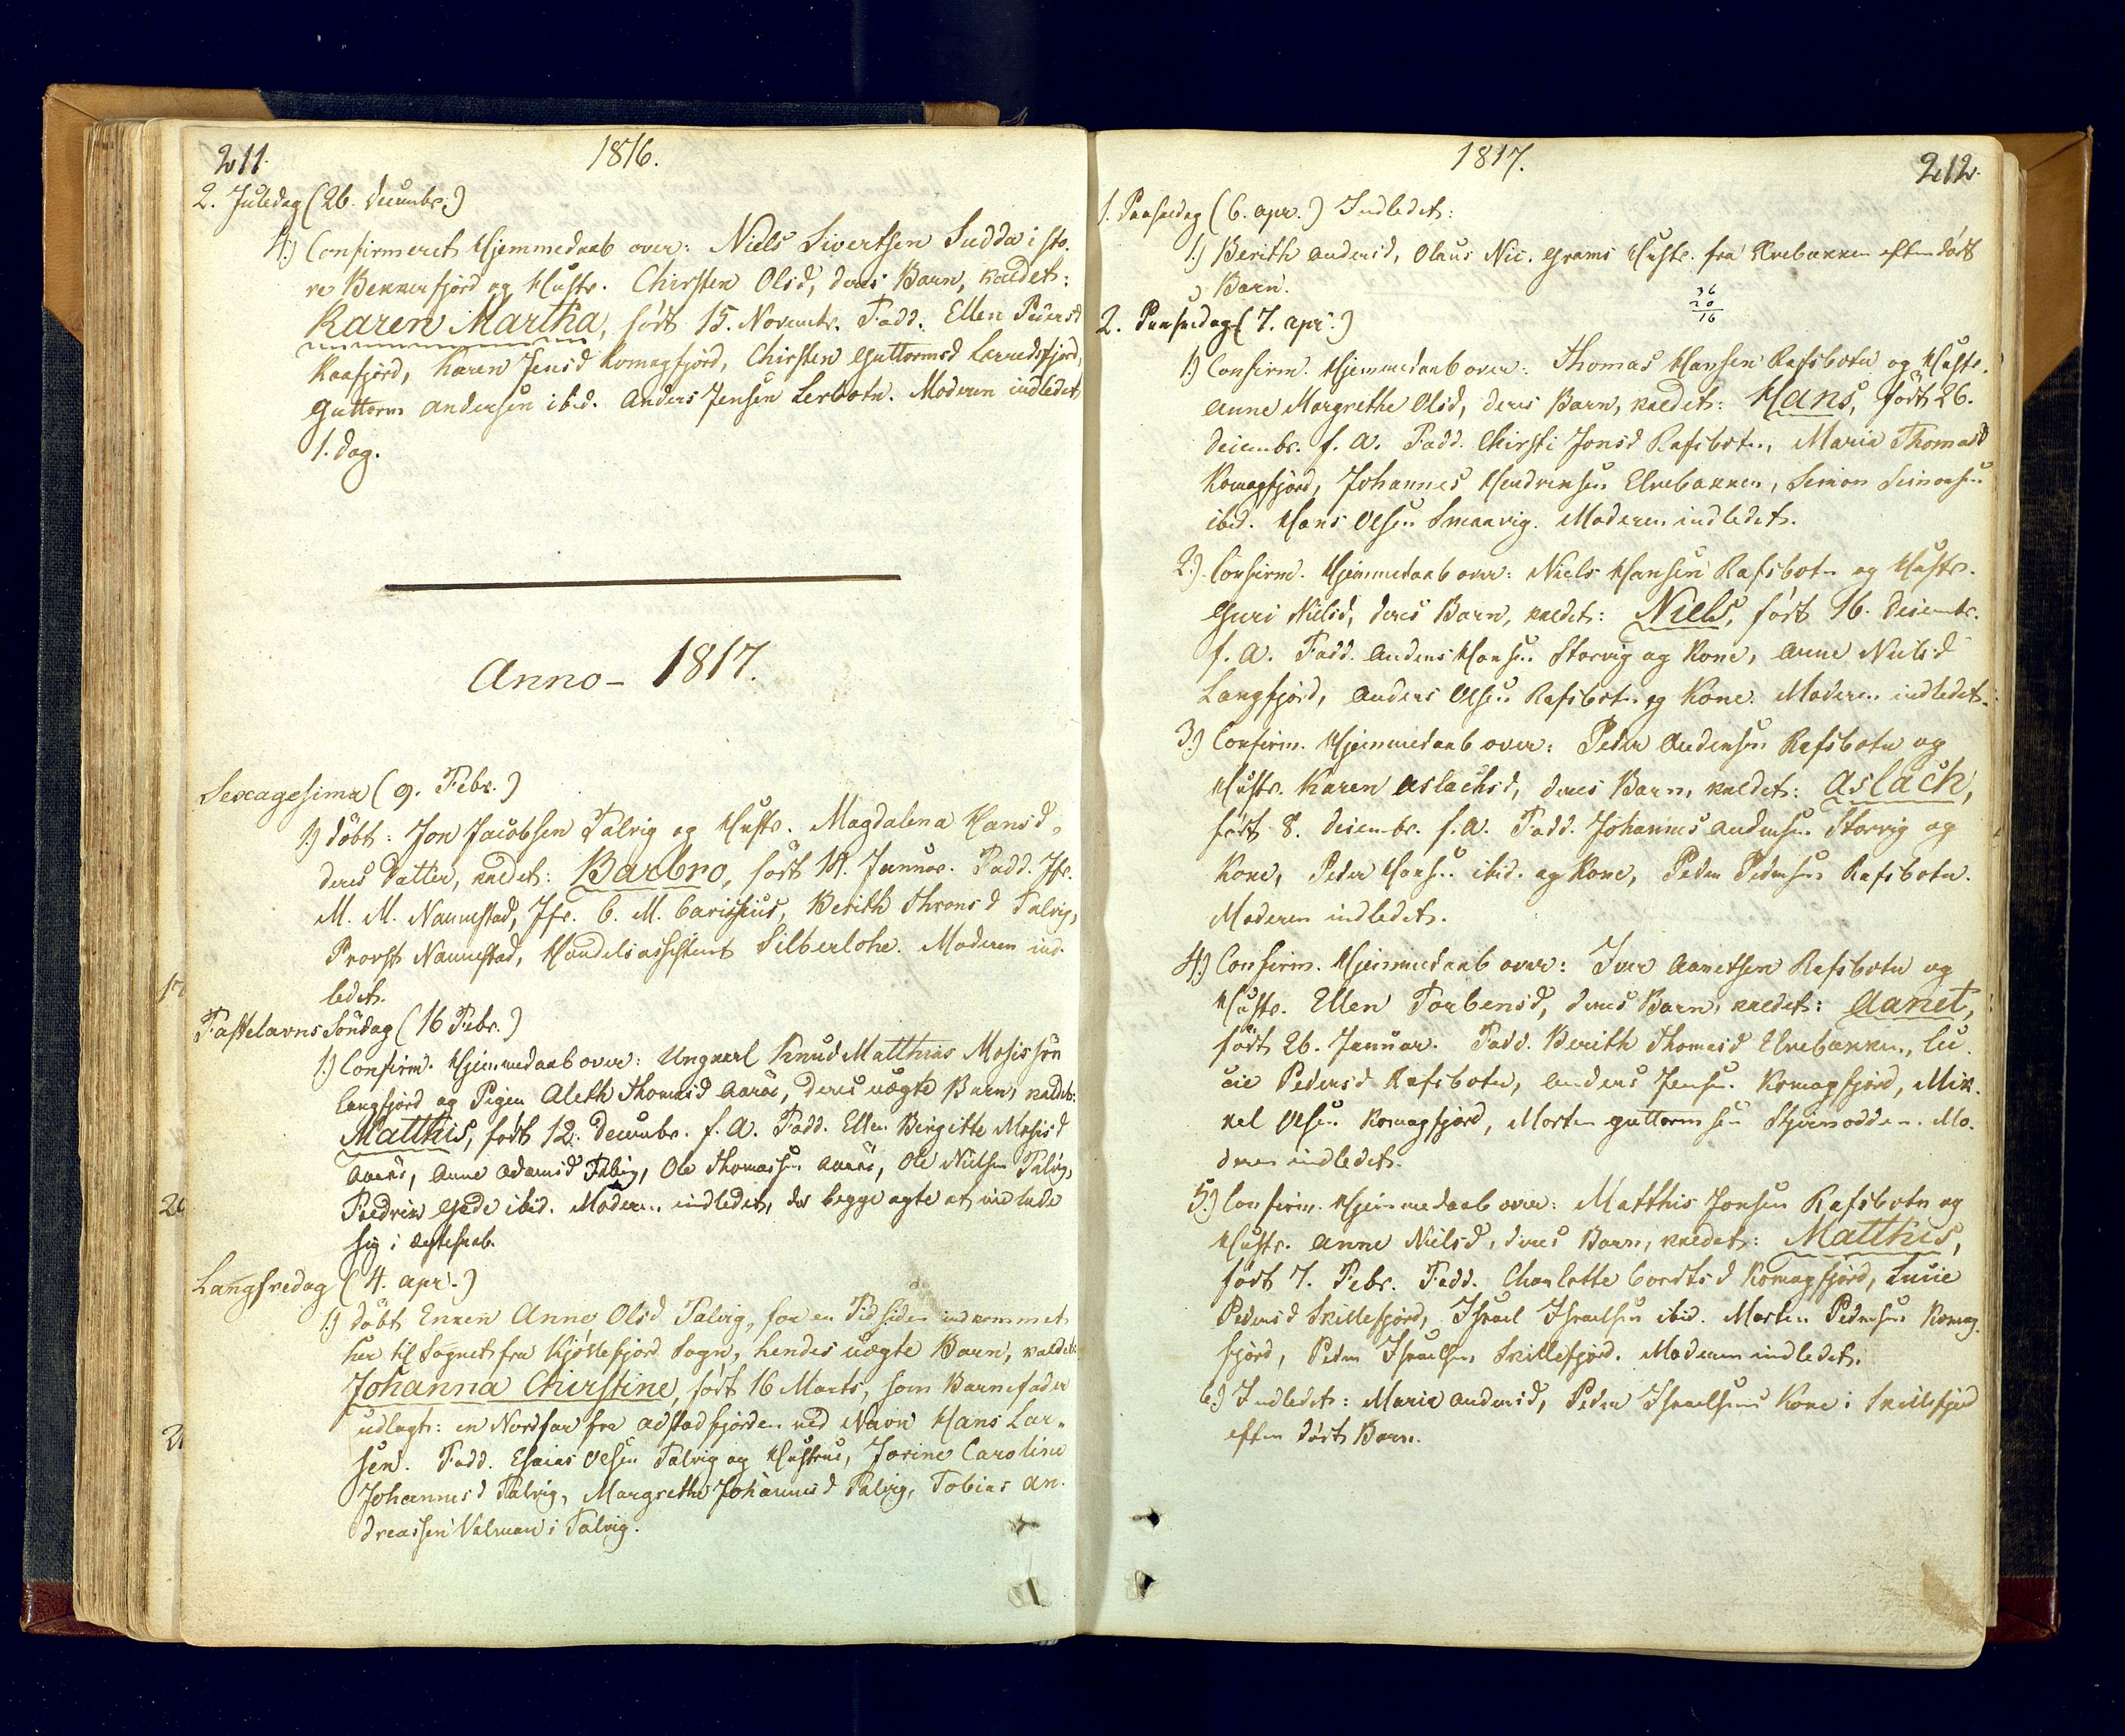 211.
1816.
2. Juledag (26. Decembr.)
4.) Confirmeret Hjemmedaab over: Niels Sivertsen Sudda i sto-
re Bekkerfjord og Hustr. Chirsten Olsd, deres Barn, kaldet:
Karen Martha, født 15. Novembr. Fadd. Ellen Pedersd
Kaafjord, Karen Jensd Komagfjord, Chirsten Guttormsd
Guttorm Andersen ibid. Anders Jensen Lerbotn. Moderen indledet
1. Dag.
Anno - 1817.
Sexagesima (9. Febr.)
1.) Døbt: Jon Jacobsen Talvig og Hustr. Magdalena Hansd,
deres Datter, kaldet: Barbro, født 14. Januar. Fadd. Jfr.
M. M. Nannestad, Jfr. C. M. Berith Thronsd Talvig,
Provst Nannestad, Handelsassistent Silberlohe. Moderen ind-
ledet.
Fastelavns Søndag (16 Febr.)
1.) Confirm. Hjemmedaab over: Ungkarl Knud Matthias Mosissøn
Langfjord og Pigen Aleth Thomasd Aarøe, deres uægte Barn, kaldet:
Matthis, født 12. Decembr. f. A. Fadd. Ellen Birgitte Mosisd
Aarøe, Anne Adamsd Talvig, Ole Thomassen Aarøe, Ole Nielsen Talvig,
Fredrik Gede ibid. Moderen indledet, da begge agte at indlade
sig i Ægteskab.
Langfredag (4. Apr.)
1.) Døbt Enken Anne Olsd Talvig, for en Tid siden indkommet
her til Sognet fra Kjøllefjord Sogn, hendes uægte Barn, kaldet:
Johanna Chirstine, født 16 Marts, som Barnefader
udlagt: en Nordfar fra ved Navn Hans Lar-
sen. Fadd. Esaias Olsen Talvig og Hustrue, Jorine Caroline
Johannesd Talvig, Margrethe Johannesd Talvig, Tobias An-
dreassen Valman i Talvig.
1817.
212.
1. Paaskedag (6. Apr.) Indledet:
1.) Berith Andersd, Olaus Nic. Grams Hustr. fra Elvebakken efter dødt
Barn.
36
20
16
2. Paaskedag (7. Apr.)
1.) Confirm. Hjemmedaab over: Thomas Hansen Rafsbotn og Hustr.
Anne Margrethe Olsd, deres Barn, kaldet: Hans, født 26.
Decembr. f. A. Fadd. Chirsti Jonsd Rafsbotn, Marie Thomasd
Komagfjord, Johannes Hendriksen Elvebakken, Simon Simonsen
ibid. Hans Olsen Smaavig. Moderen indledet.
2.) Confirm. Hjemmedaab over: Niels Hansen Rafsbotn og Hustr.
Guri Nielsd, deres Barn, kaldet: Niels, født 16. Decembr.
f. A. Fadd. Anders Hansen Storvig og Kone, Anne Nielsd
Langfjord, Anders Olsen Rafsbotn og Kone. Moderen indledet.
3.) Confirm. Hjemmedaab over: Peder Andersen Rafsbotn og
Hustr. Karen Aslachsd, deres Barn, kaldet: Aslach,
født 8. Decembr. f. A. Fadd. Johannes Andersen Storvig og
Kone, Peder Hansen ibid. og Kone, Peder Pedersen Rafsbotn.
Moderen indledet.
4.) Confirm. Hjemmedaab over: Iver Aanetsen Rafsbotn og
Hustr. Ellen Torbensd, deres Barn, kaldet: Aanet,
født 26. Januar. Fadd. Berith Thomasd Elvebakken, Lu-
cie Pedersd Rafsbotn, Anders Jensen Komagfjord, Mik-
kel Olsen Komagfjord, Morten Guttormsen Mo-
deren indledet.
5.) Confirm. Hjemmedaab over: Matthis Jonsen Rafsbotn og
Hustr. Anne Nielsd, deres Barn, kaldet: Matthis,
født 7. Febr. Fadd. Charlotte Cordtsd Komagfjord, Lucie
Pedersd Skillefjord, Israel Israelsen ibid. Morten Pedersen Komag-
fjord, Peder Israelsen Skillefjord. Moderen indledet.
6.) Indledet: Marie Andersd, Peder Israelsens Kone i Skillefjord
efter dødt Barn.